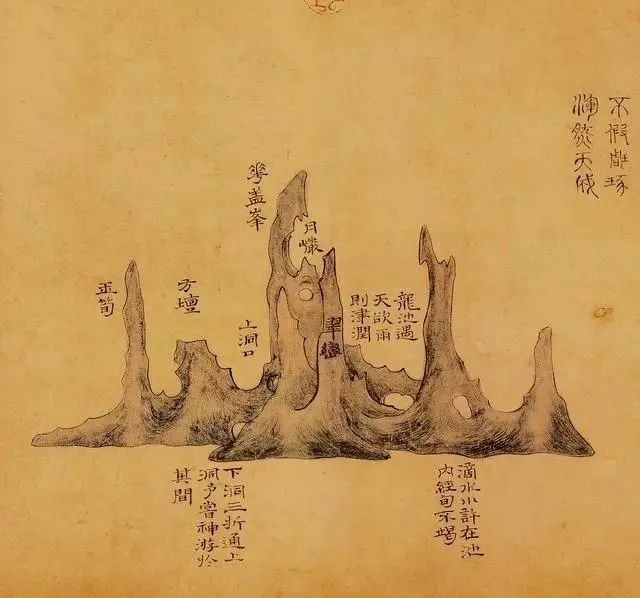 不假雕琢
渾然天成
龍池遇
天欲雨
則津潤
月巖
翠巒
華盖峯
上洞口
方壇
玉筍
滴水小許在池
內經旬不竭
下洞三折通上
洞予嘗神游於
其間